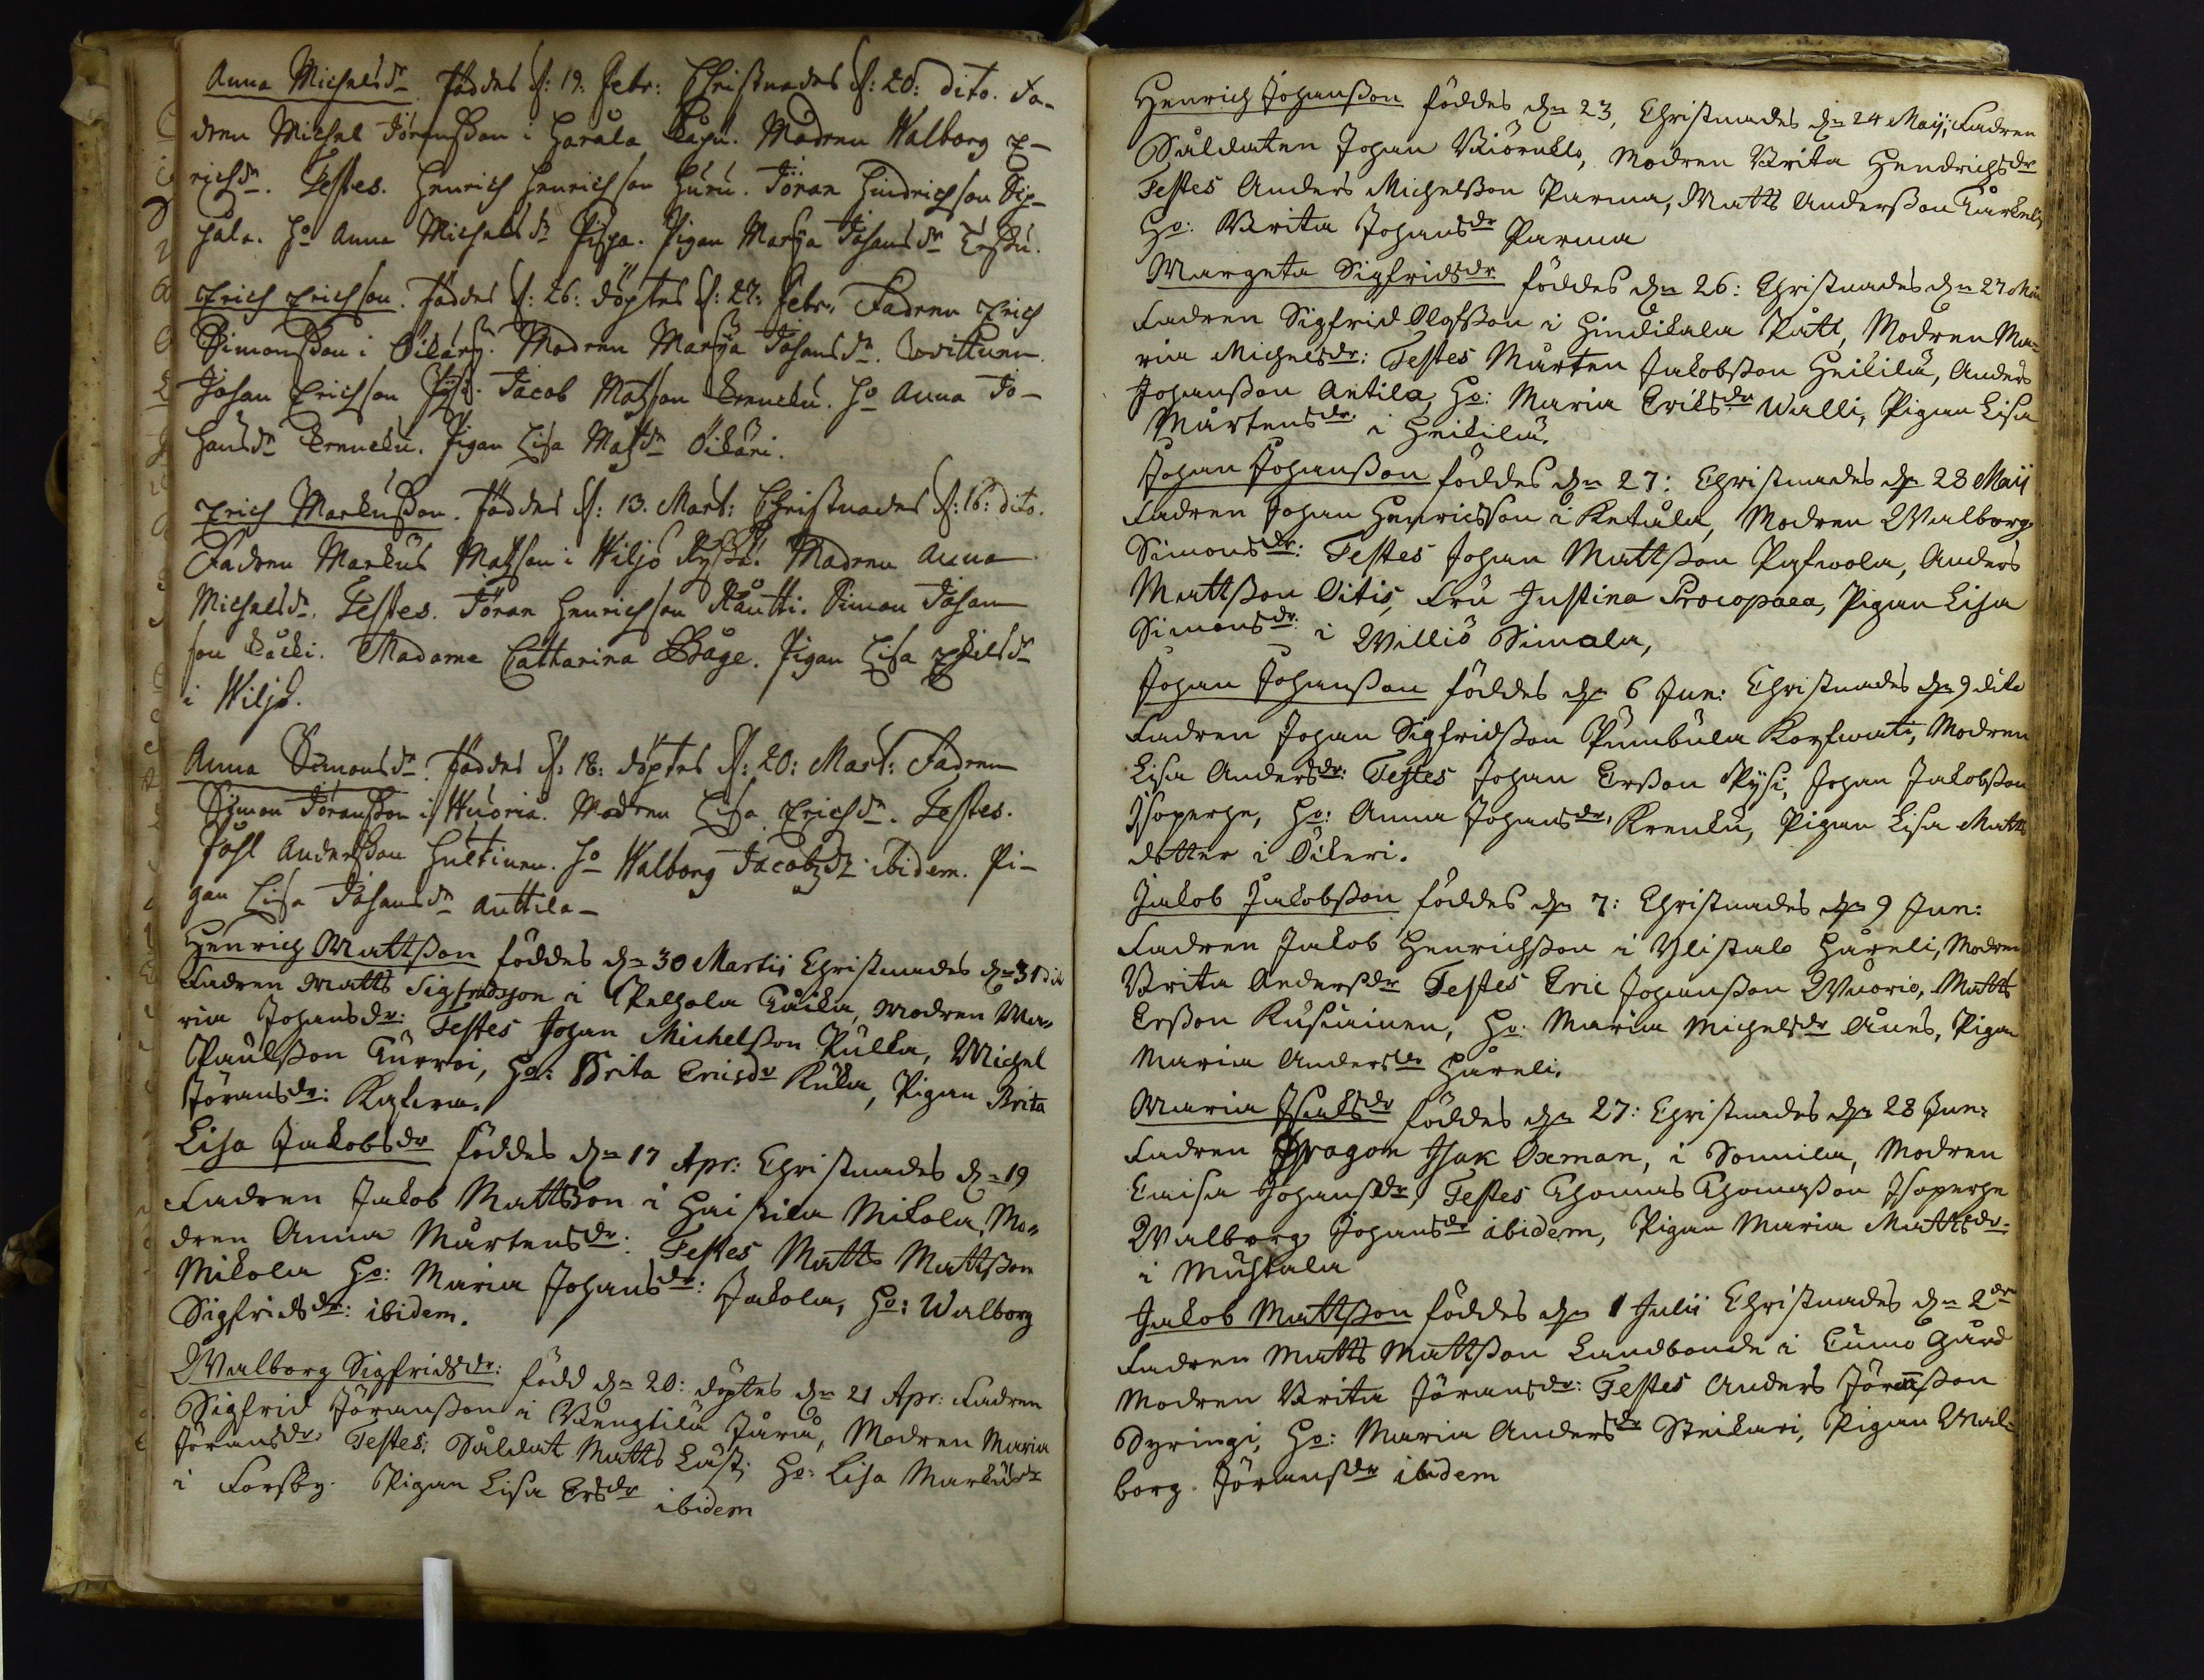 Anna Michelsdr. föddes d: 19. Febr: Christnades d: 20: dito. Fa-
dren Michel Jöransson i Harala. Modren Walborg E-
richsdr. Testes. Henrich Henrichson Huru. Jöran Hindrichson Sip-
hala. Ho Anna Michelsdr Pispa. Pigan Marja Johansdr
Erich Erichson. föddes d: 26: döptes d: 27: Febr. Fadren Erich
Simonsson i Öikäry. Modren Marja Johansdr.
Johan Erichson Pysi. Jacob Matsson Krencku. Ho Anna Jo-
hansdr Krencku. Pigan Lisa Matsdr Öikäri.
Erich Markusson. föddes d: 13. Mart: Christnades d: 16: dito.
Fadren Markus Matsson i Wiljo. Modren Anna
Michelsdr. Testes. Jöran Henrichson Räutti. Simon Johan
son Käcki. Madame Catharina Båge. Pigan Lisa
i Wiljo.
Anna Simonsdr. föddes d: 18: döptes d: 20: Mart: Fadren
Simon Jöransson i Wuoria. Modren Lisa Erichsdr. Testes.
Påhl Andersson Hultinen. Ho Walborg Jacobsdr ibidem. Pi-
gan Lisa Johansdr Anttila-
Henrich Mattsson föddes dn 30 Martij Christnades dn 31 dito
Fadren Matts Sigfridsson i Pelhola, Modren Ma-
ria Johansdr: Testes Johan Michelsson Pulkka, Michel
Paulsson Kurroi, Ho: Brita Ericsdr Kuka, Pigan Brita
Jöransdr:
Lisa Jakobsdr föddes dn 17 Apr: Christnades dn 19
Fadren Jakob Mattsson i Haistila Mikola, Mo-
dren Anna Mårtensdr: Testes Matts Mattsson
Mikola Ho: Maria Johansdr: Jakola, Ho: Walborg
Sigfridsdr: ibidem.
Walborg Sigfridsdr: född dn 20: döptes dn 21 Apr: Fadren
Sigfrid Jöransson i Bengtilä Juru, Modren Maria
Jöransdr. Testes: Såldat Matts Lust, Ho: Lisa Markusdr
i Forsby. Pigan Lisa Ersdr ibidem
Henrich Johansson föddes dn 23, Christnades dn 24 Maij; Fadren
Såldaten Johan Biörnklo, Modren Brita Hendrichsdr
Testes Anders Michelsson Parma, Matts Andersson
Ho: Brita Johansdr Parma
Margeta Sigfridsdr föddes dn 26: Christnades dn 27 Mai
Fadren Sigfrid Olofsson i Hindikala Påtti, Modren Ma-
ria Michelsdr: Testes Mårten Jakobsson Heikilä, Anders
Johansson Antila, Ho: Maria Eriksdr Walli, Pigan Lisa
Mårtensdr i Heikilä.
Johan Johansson föddes dn 27: Christnades dn 28 Maij
Fadren Johan Henricsson i Ketula, Modren Walborg
Simonsdr: Testes Johan Mattsson, Anders
Mattsson Oitis, Fru Justina Procopaea, Pigan Lisa
Simonsdr: i Williö Simola,
Johan Johansson föddes dn 6 Jun: Christnades dn 9 dito
Fadren Johan Sigfridsson Pumbula Korfwati, Modren
Lisa Andersdr: Testes Johan Ersson Pysi, Johan Jakobsson
Isoperhe, Ho: Anna Johansdr, Krenku, Pigan Lisa Matts
dotter i Öikeri.
Jakob Jakobsson föddes dn 7: Christnades dn 9 Jun:
Fadren Jakob Henrichsson i Ylistalo Håreli, Modren
Brita Andersdr Testes Eric Johansson Wuorio, Matts
Ersson Kusiainen, Ho: Maria Michelsdr Aunes, Pigan
Maria Andersdr Håreli.
Maria Isaksdr föddes dn 27: Christnades dn 28 Jun:
Fadren Dragon Isak Oxman, i Sonnila, Modren
Caisa Johansdr, Testes Thomas Thomasson Isoperhe
Walborg Johansdr ibidem, Pigan Maria Mattsdr.
i Muhtala
Jakob Mattsson föddes dn 1 Julii Christnades dn 2dr
Fadren Matts Mattsson Landbonde i Cumo Gård
Modren Brita Jöransdr: Testes Anders Jöransson
Syringi, Ho: Maria Andersdr Steikari, Pigan Wal-
borg. Jöransdr ibidem